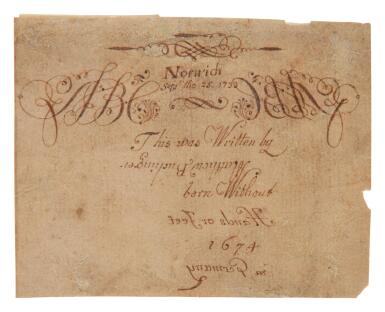 Norwich
the 28.
This was Written by
Matthew Buchinger
born Without
Hands or Feet
1674
in Germany